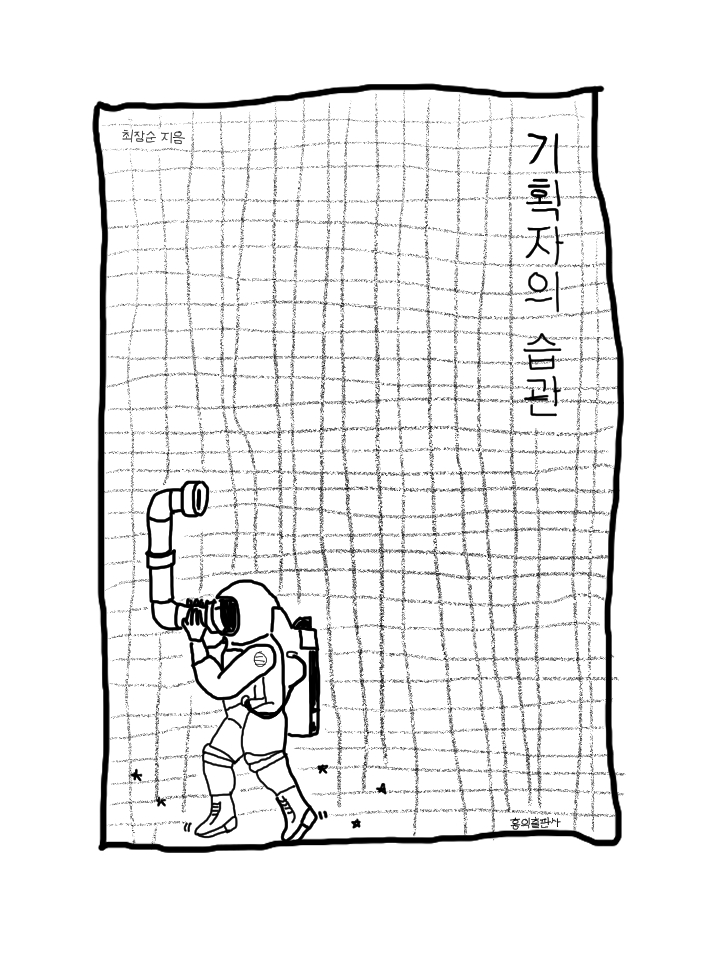 최장순 지음
기획자의 습관
홍익출판사